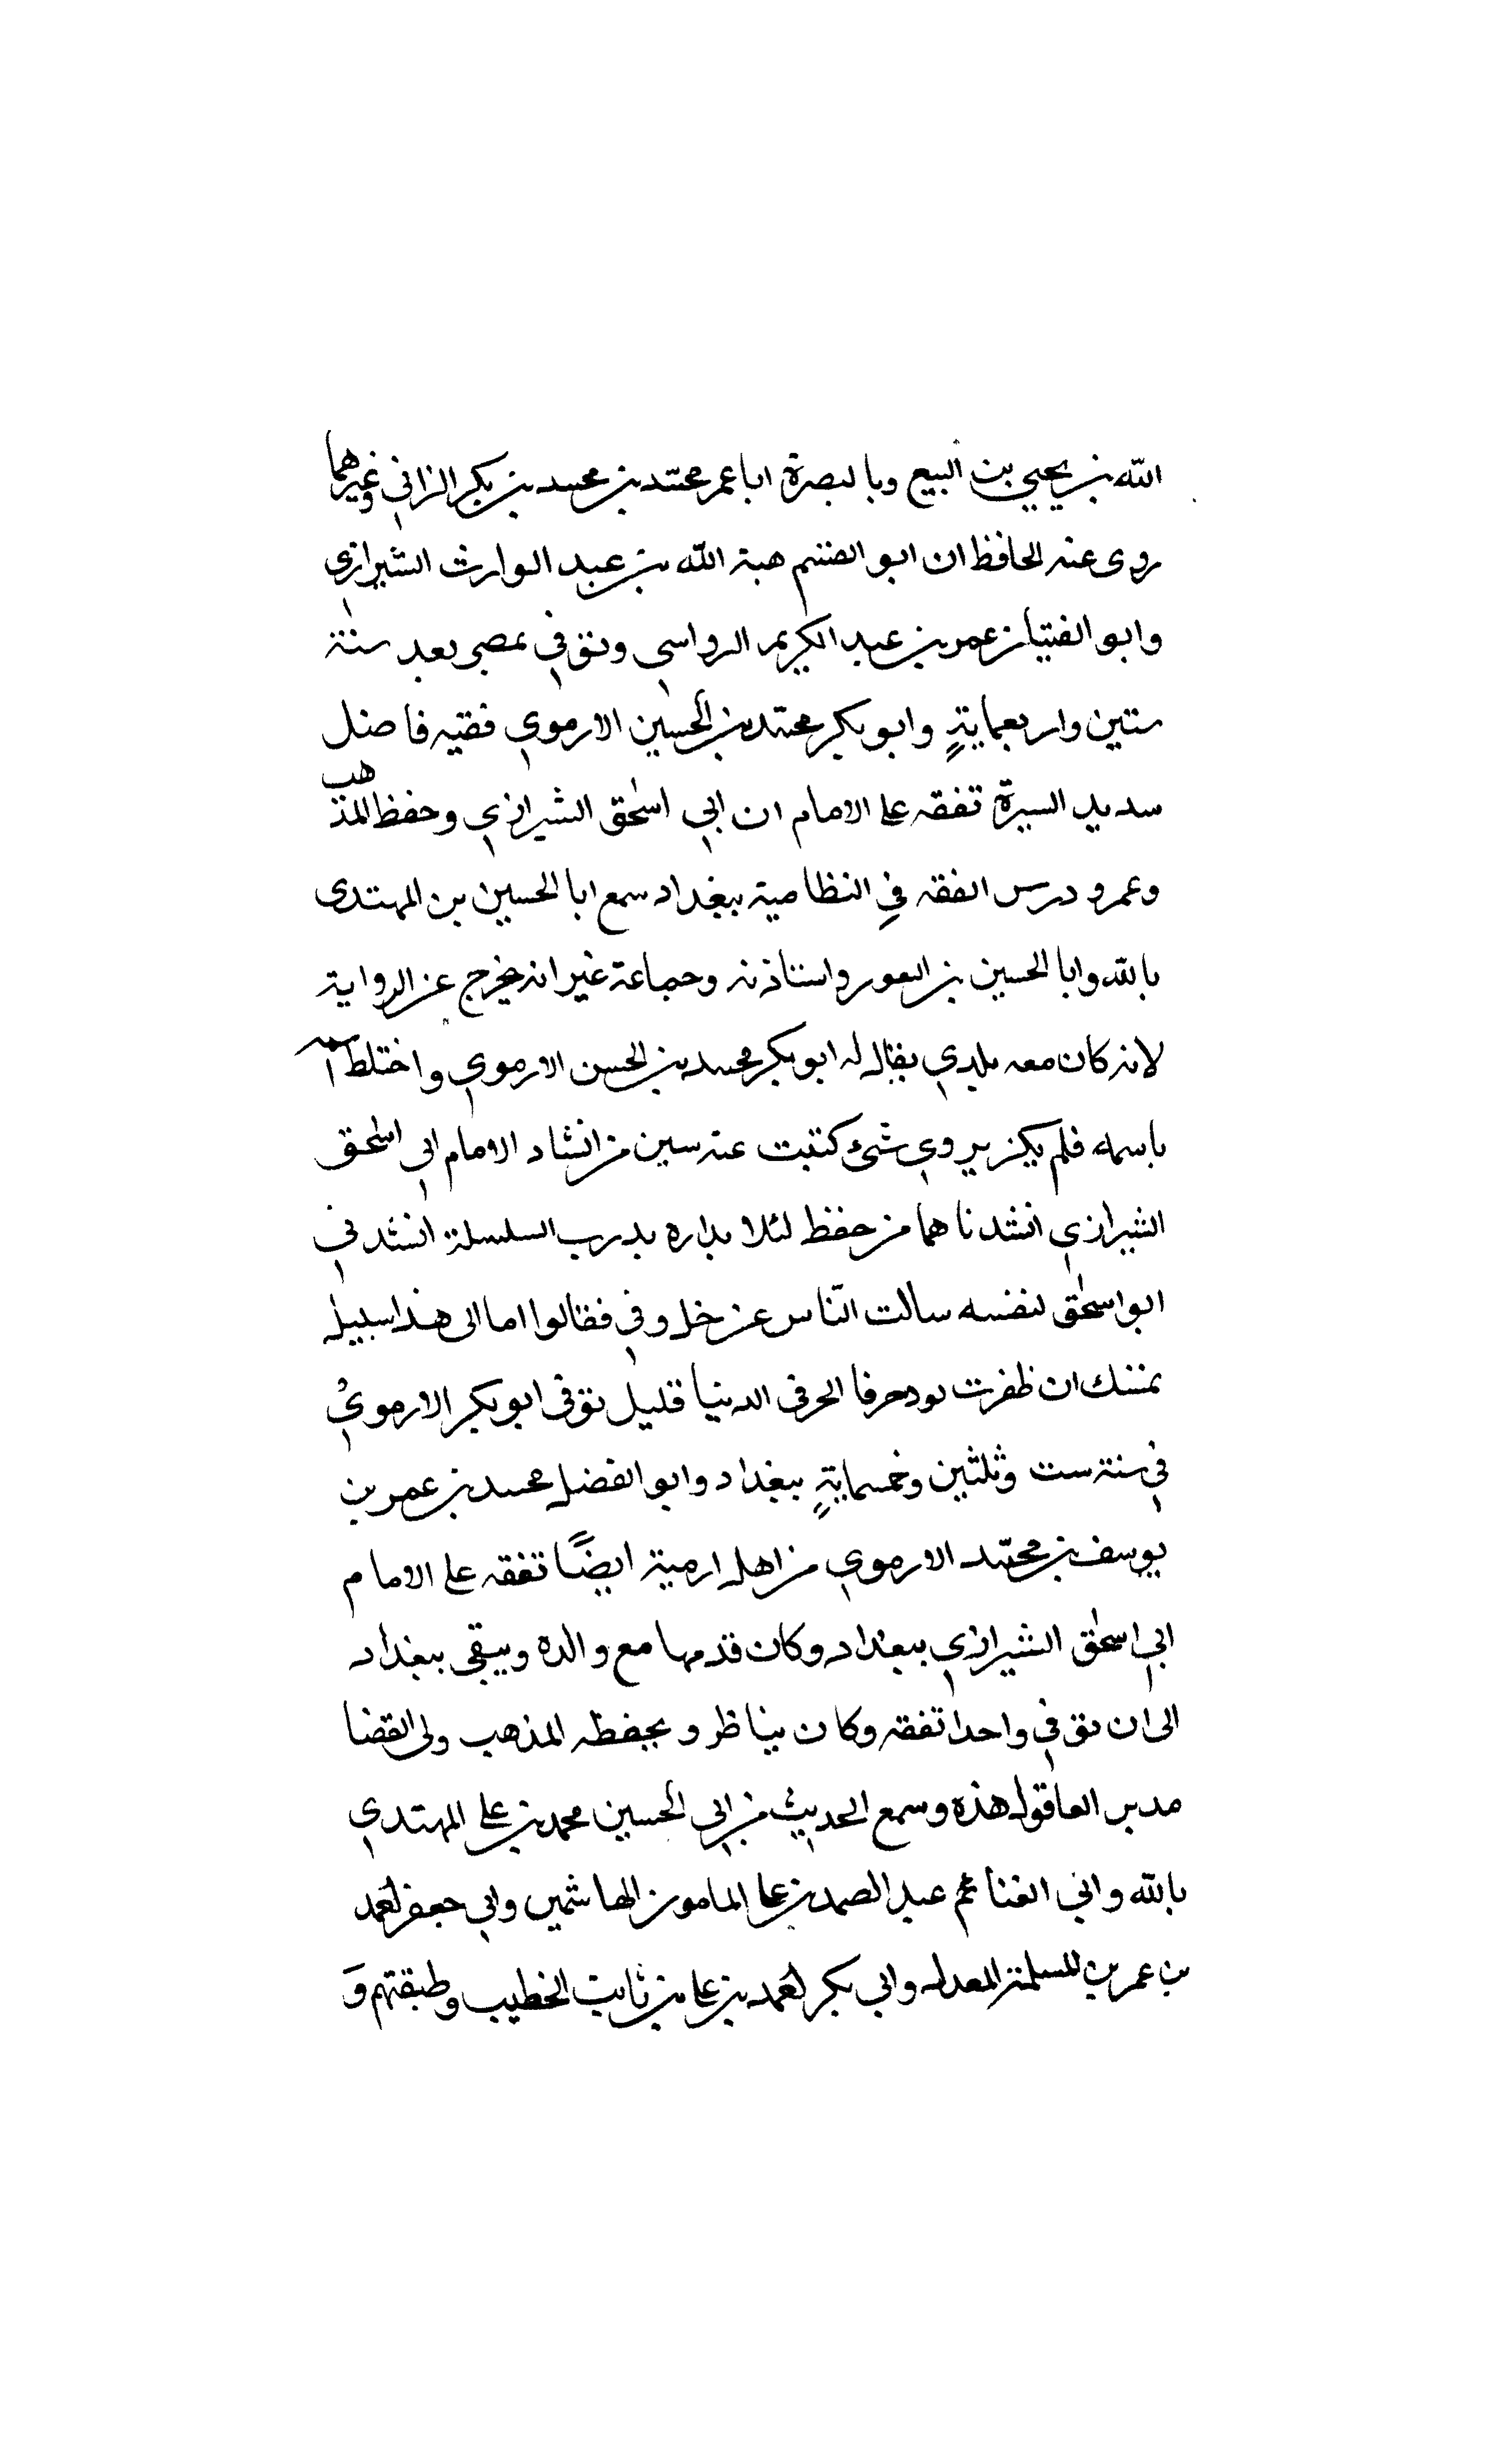 الله بن يحيي بن البيع وبالبصرة ابا عمر محمد بن محمد بن بكر الزاني وغيرهما
روى عنه الحافظان ابو القسم هبة الله بن عبد الوارث الشيرازي
وابو الفتيان عمر بن عبد الكريم الرواسي وتوفي بمصر بعد سنة
ستين واربعماية وابو بكر محمد بن الحسين الارموي فقيه فاضل
سديد السيرة تفقه على الامام ان ابي اسحق الشيرازي وحفظ المذهب
وعمر ودرس الفقه في النظامية ببغداد سمع ابا الحسين بن المهتدى
بالله وابا الحسين بن واستاذنه وجماعة غير انه يخرج عن الرواية
لانه كان معه بلدي يقال له ابو بكر محمد بن الحسن الارموي واختلط اسمه
باسمه فلم يكن يروي شئ كتبت عنه من انشاد الامام ابي اسحق
الشيرازي انشدناهما من حفظ لئلا بداره بدرب السلسلة انشدني
ابو اسحق لنفسه سالت الناس عن خل وفي فقالوا ما الى هذا سبيل
تمسك ان ظفرت الحر في الدنيا قليل توفى ابو بكر الارموي
في سنة ست وثلثين وخمسماية ببغداد وابو الفضل محمد بن عمر بن
يوسف بن محمد الارموي من اهل ارمية ايضًا تفقه على الامام
ابي اسحق الشيرازي ببغداد وكان قدمها مع والده وبيقى ببغداد
الى ان توفي واحدا تفقه وكان يناظر و بحفظه المذهب ولى القضا
مدير العاقول هذه وسمع الحديث من ابي الحسين محمد بن على المهتدي
بالله وابي الغنائم عبد الصمد بن على المامون الهاشمين وابي جعفر احمد
بن عمر بن المسلمة المعدل وابي بكر احمد بن على بن ثابت الخطيب وطبقتهم وَ